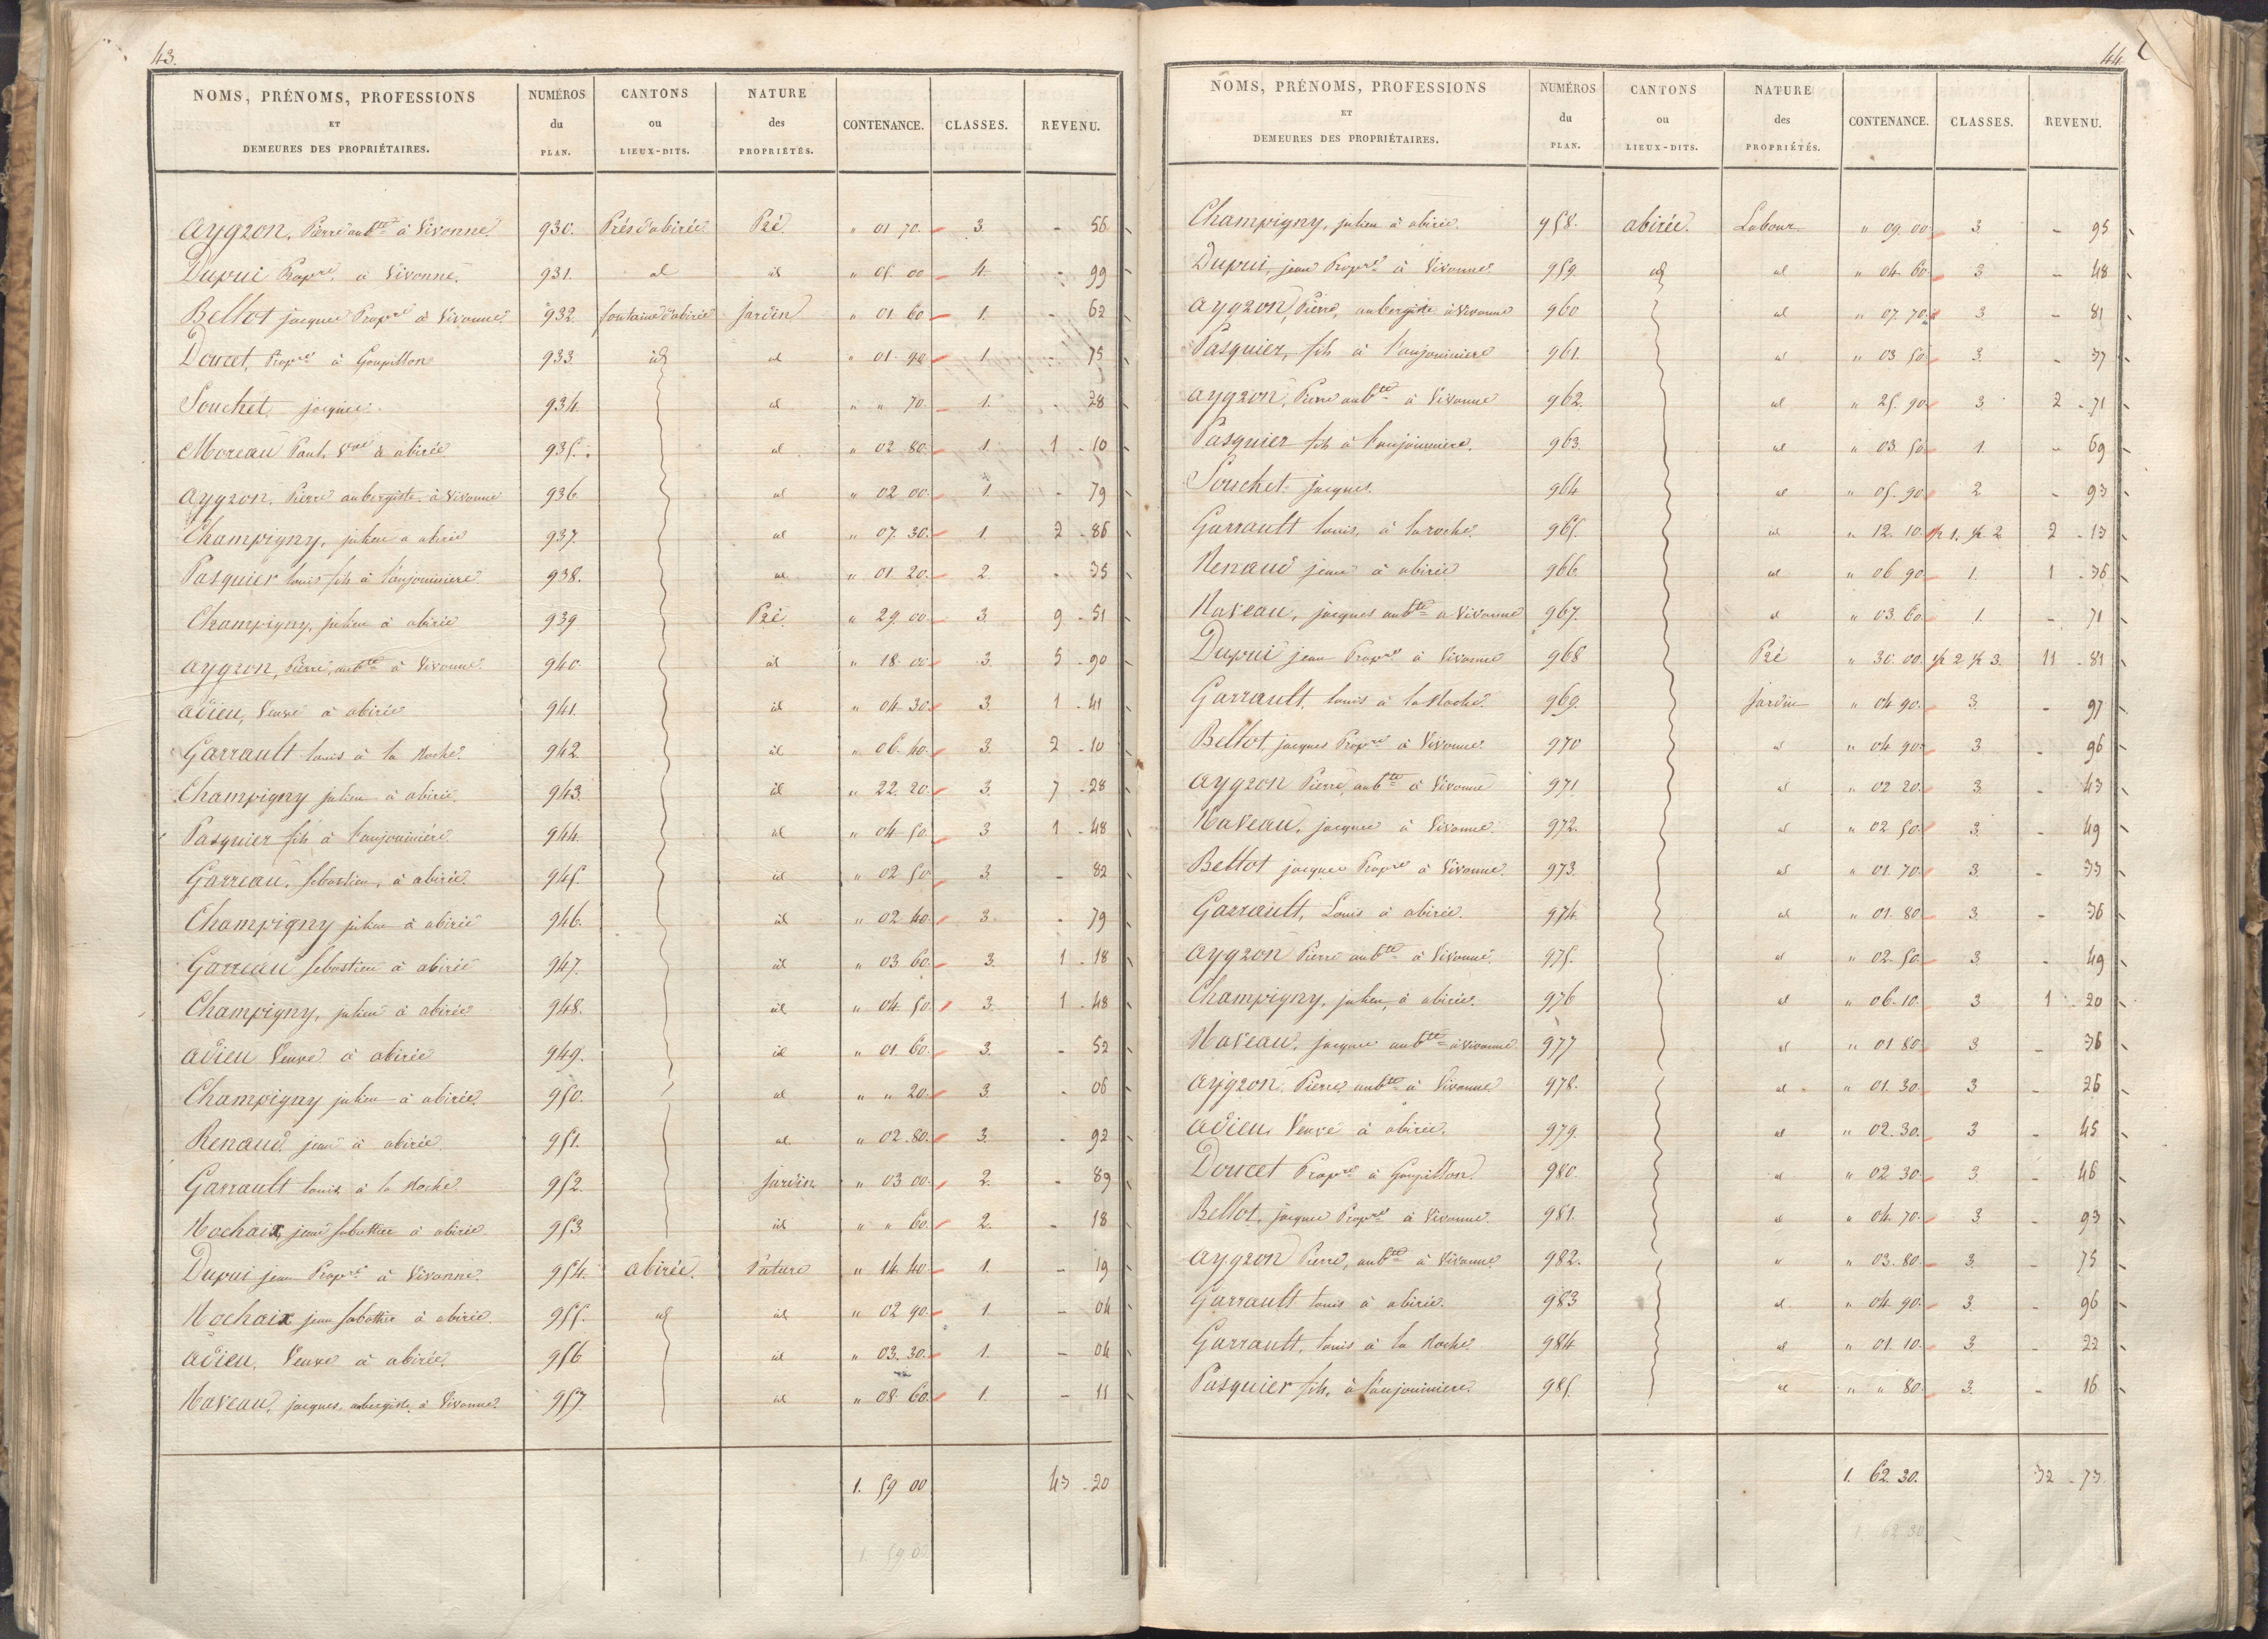 43.
NOMS, PRÉNOMS, PROFESSIONS ET DEMEURES DES PROPRIÉTAIRES. NUMÉROS du PLAN. CANTONS ou LIEUX-DITS. NATURE des PROPRIÉTÉS. CONTENANCE. CLASSES. REVENU.
Aygron, Pierre aubte à Vivonne 930. Prés d'abirée Pré " 01 70. 3. - 56
Dupui Propre à Vivonne. 931. id id " 05 00 4. - 99
Bellot jacques Propre à Vivonne. 932. fontaine d'abirée Jardin " 01 60 1. - 62
Doucet, Propre à Goupillon 933. id id " 01 90 1. - 75
Souchet, jacques. 934. id " " 70. 1. - 28
Moreau Paul, Vve à abirée 935. id " 02 80. 1. 1 - 10
Aygron, Pierre aubergiste à Vivonne 936. id " 02 00. 1. - 79
Champigny, julien à abirée 937. id " 07. 30. 1. 2 - 86
Pasquier louis fils à l'aujouiniere 938. id " 01 20. 2. - 35
Champigny, julien à abirée 939 Pré " 29 00. 3. 9 - 51
Aygron, Pierre, aubte à Vivonne. 940. id " 18 00 3. 5 - 90
Adieu, Veuve à abirée 941. id " 04 30. 3. 1 - 41
Garrault louis à la Roche. 942. id " 06. 40. 3. 2 - 10
Champigny julien à abirée. 943. id " 22. 20. 3. 7 - 28
Pasquier fils à l'aujouiniére. 944. id " 04 50. 3 1 - 48
Garreau, sebastien, à abirée. 945. id " 02 50 3. - 82
Champigny julien à abirée 946. id " 02 40. 3. - 79
Garreau sebastien à abirée 947. id " 03 60. 3. 1 - 18
Champigny, julien à abirée 948. id " 04. 50. 3. 1 - 48
Adieu Veuve à abirée 949. id " 01. 60. 3. - 52
Champigny julien à abirée. 950. id " " 20. 3. - 06
Renaud jean à abirée 951. id " 02. 80. 3. - 92
Garrault louis à la Roche 952. Jardin " 03 00. 2. - 89
Rochaix, jean sabottier à abirée 953 id " " 60. 2. - 18
Dupui jean Propre à Vivonne. 954. abirée. Pature " 14. 40. 1. - 19
Rochaix jean sabottier à abirée. 955. id id " 02 90. 1. - 04
Adieu, Veuve à abirée. 956 id " 03. 30. 1. - 04
Naveau, jacques, aubergiste à Vivonne. 957. id " 08 60. 1. - 11
1. 59 00 43 - 20
44
NOMS, PRÉNOMS, PROFESSIONS ET DEMEURES DES PROPRIÉTAIRES. NUMÉROS du PLAN. CANTONS ou LIEUX-DITS. NATURE des PROPRIÉTÉS. CONTENANCE. CLASSES. REVENU.
Champigny, julien à abirée. 958. abirée. Labour " 09. 00 3. - 95
Dupui, jean Propre à Vivonne. 959. id id " 04 60. 3. - 48
Aygron, Pierre, aubergiste à Vivonne 960 id " 07. 70. 3. - 81
Pasquier, fils à l'aujouiniere 961. id " 03 50. 3. - 37
Aygron, Pierre aubte à Vivonne 962. id " 25. 90. 3. 2 - 71
Pasquier fils à l'aujouiniere. 963. id " 03. 50. 1. - 69
Souchet jacques. 964 id " 05. 90. 2 - 93
Garrault louis, à la roche. 965. id " 12. 10. 1/2 1. 1/2 2 2 - 13
Renaud jean à abirée 966. id " 06 90. 1. 1 - 36
Naveau, jacques aubte à Vivonne 967. id " 03. 60. 1. - 71
Dupui jean Propre à Vivonne 968 Pré " 30. 00. 1/2 2 1/2 3. 11 - 81
Garrault, louis à la Roche. 969. Jardin " 04 90. 3. - 97
Bellot, jacques Propre à Vivonne. 970 id " 04 90. 3. - 96
Aygron Pierre, aubte à Vivonne 971 id " 02 20. 3. - 43
Naveau, jacques à Vivonne. 972. id " 02 50. 3. - 49
Bellot jacques Propre à Vivonne. 973. id " 01. 70. 3. - 33
Garrault, Louis à abirée. 974 id " 01. 80. 3. - 36
Aygron Pierre aubte à Vivonne. 975. id " 02. 50. 3. - 49
Champigny, julien, à abirée. 976 id " 06. 10. 3 1 - 20
Naveau, jacques aubte à Vivonne 977 id " 01 80. 3. - 36
Aygron Pierre, aubte à Vivonne 978. id " 01. 30. 3 - 26
Adieu Veuve à abirée. 979. id " 02. 30. 3 - 45
Doucet Propre à Goupillon. 980. id " 02. 30. 3. - 46
Bellot, jacques Propre à Vivonne. 981. id " 04. 70. 3. - 93
Aygron Pierre, aubte à Vivonne 982. id " 03. 80. 3. - 75
Garrault louis à abirée. 983 id " 04. 90. 3. - 96
Garrault, louis à la Roche 984 id " 01. 10. 3. - 22
Pasquier fils, à l'aujouiniere. 985. id " " 80. 3. - 16
1. 62. 30. 32 - 73
1. 62 30